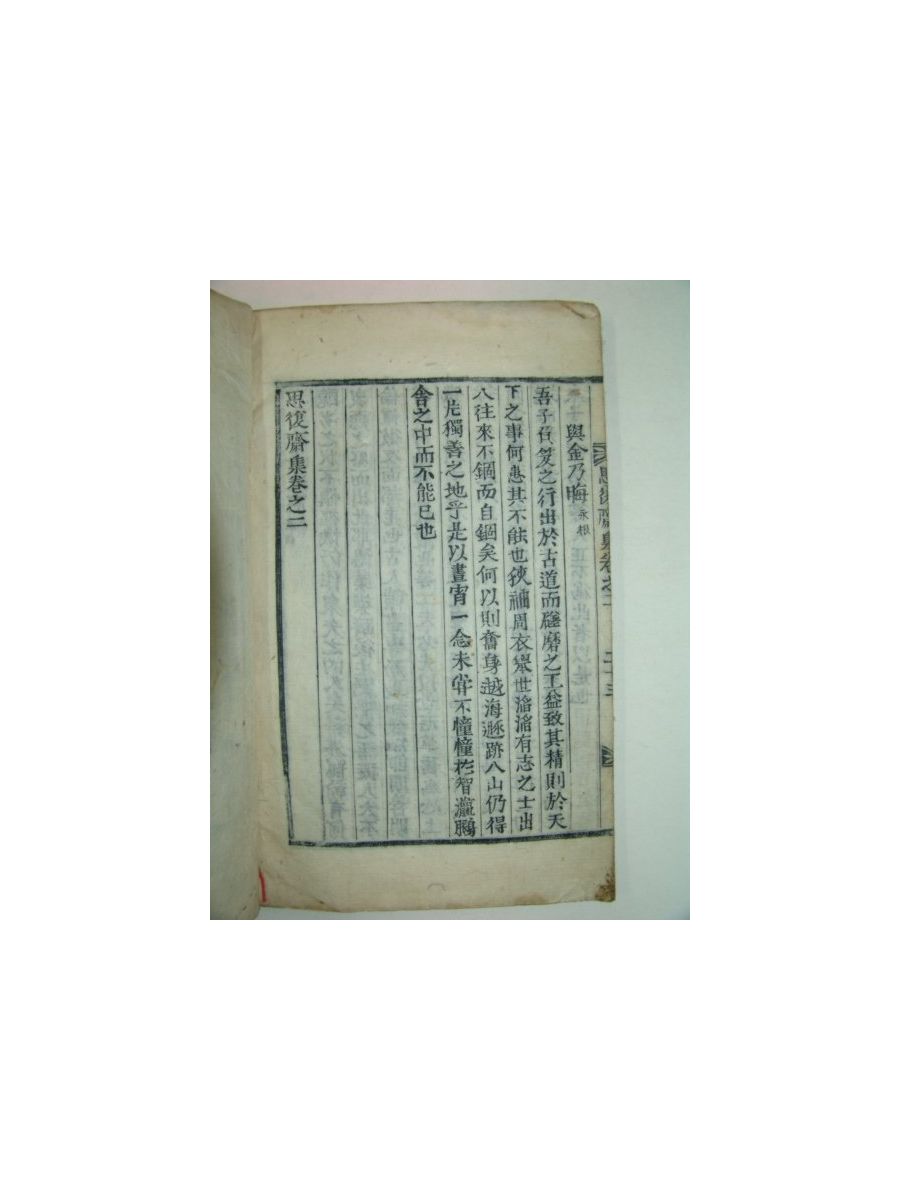 與金乃晦 永根
吾子負笈之行出於古道而礲磨之工益致其精則於天
下之事何患其不能也狹袖周衣擧世滔滔有志之士出
入往來不錮而自錮矣何以則奮身越海遯跡入山仍得
一片獨善之地乎是以晝宵一念未嘗不憧憧於智瀛鵬
舍之中而不能已也
思復齋集卷之二